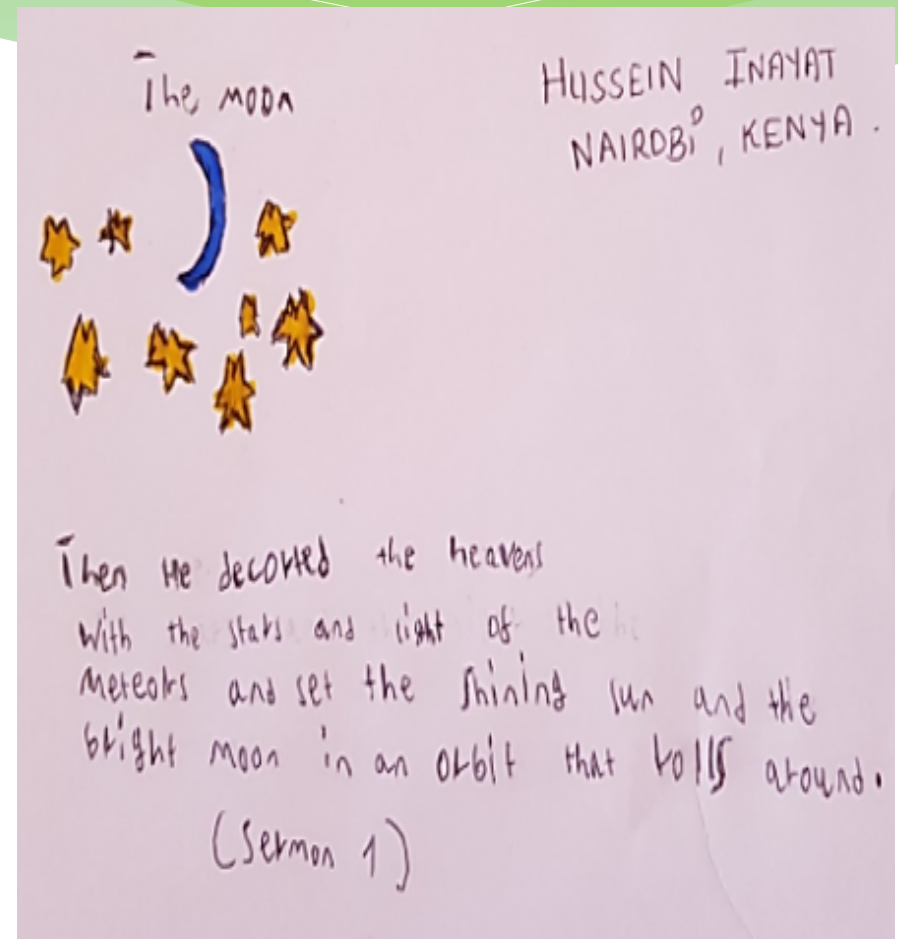 The moon
HUSSEIN INAYAT
NAIROBI, KENYA.
Then He decorted the heavens
with the stars and light of the
Meteors and set the shining sun and the
bright moon in an orbit that rolls around.
(Sermon 1)